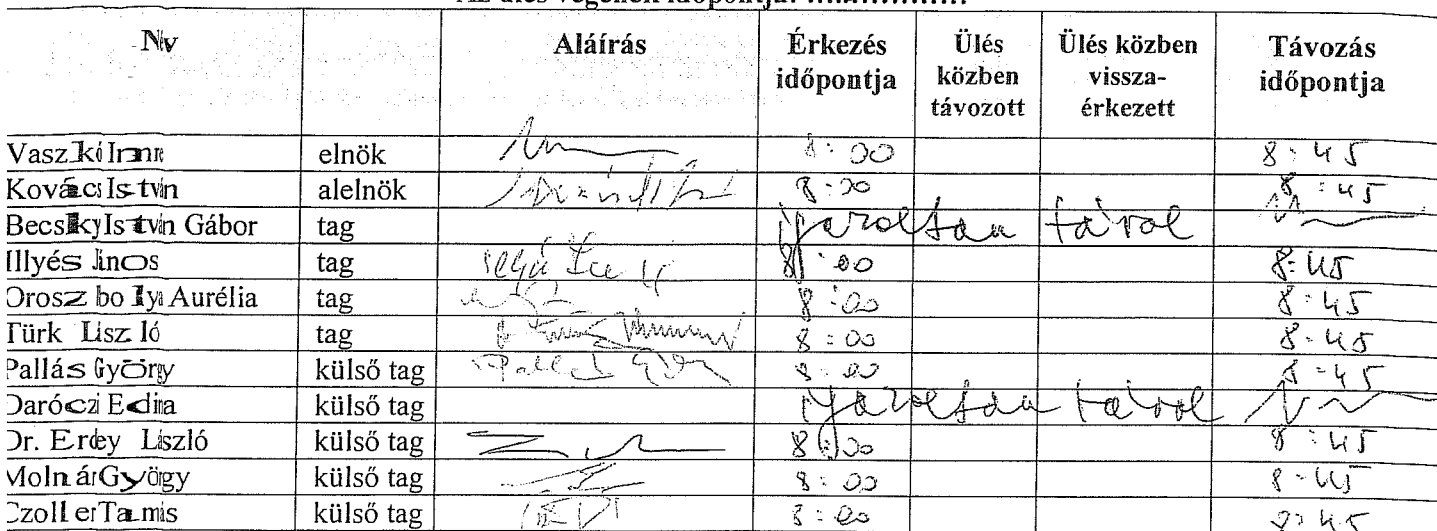 Az ülés végének időpontja: ....................
Név Aláírás Érkezés időpontja Ülés közben távozott Ülés közben vissza-érkezett Távozás időpontja
Vaszkó Imre elnök 8:00 8:45
Kovács István alelnök 8:00 8:45
Becsky István Gábor tag igazoltan távol
Illyés János tag 8:00 8:45
Orosz Ibolya Aurélia tag 8:00 8:45
Türk László tag 8:00 8:45
Pallás György külső tag 8:00 8:45
Daróczi Edina külső tag igazoltan távol
Dr. Erdey László külső tag 8:00 8:45
Molnár György külső tag 8:00 8:45
Czoller Tamás külső tag 8:00 8:45